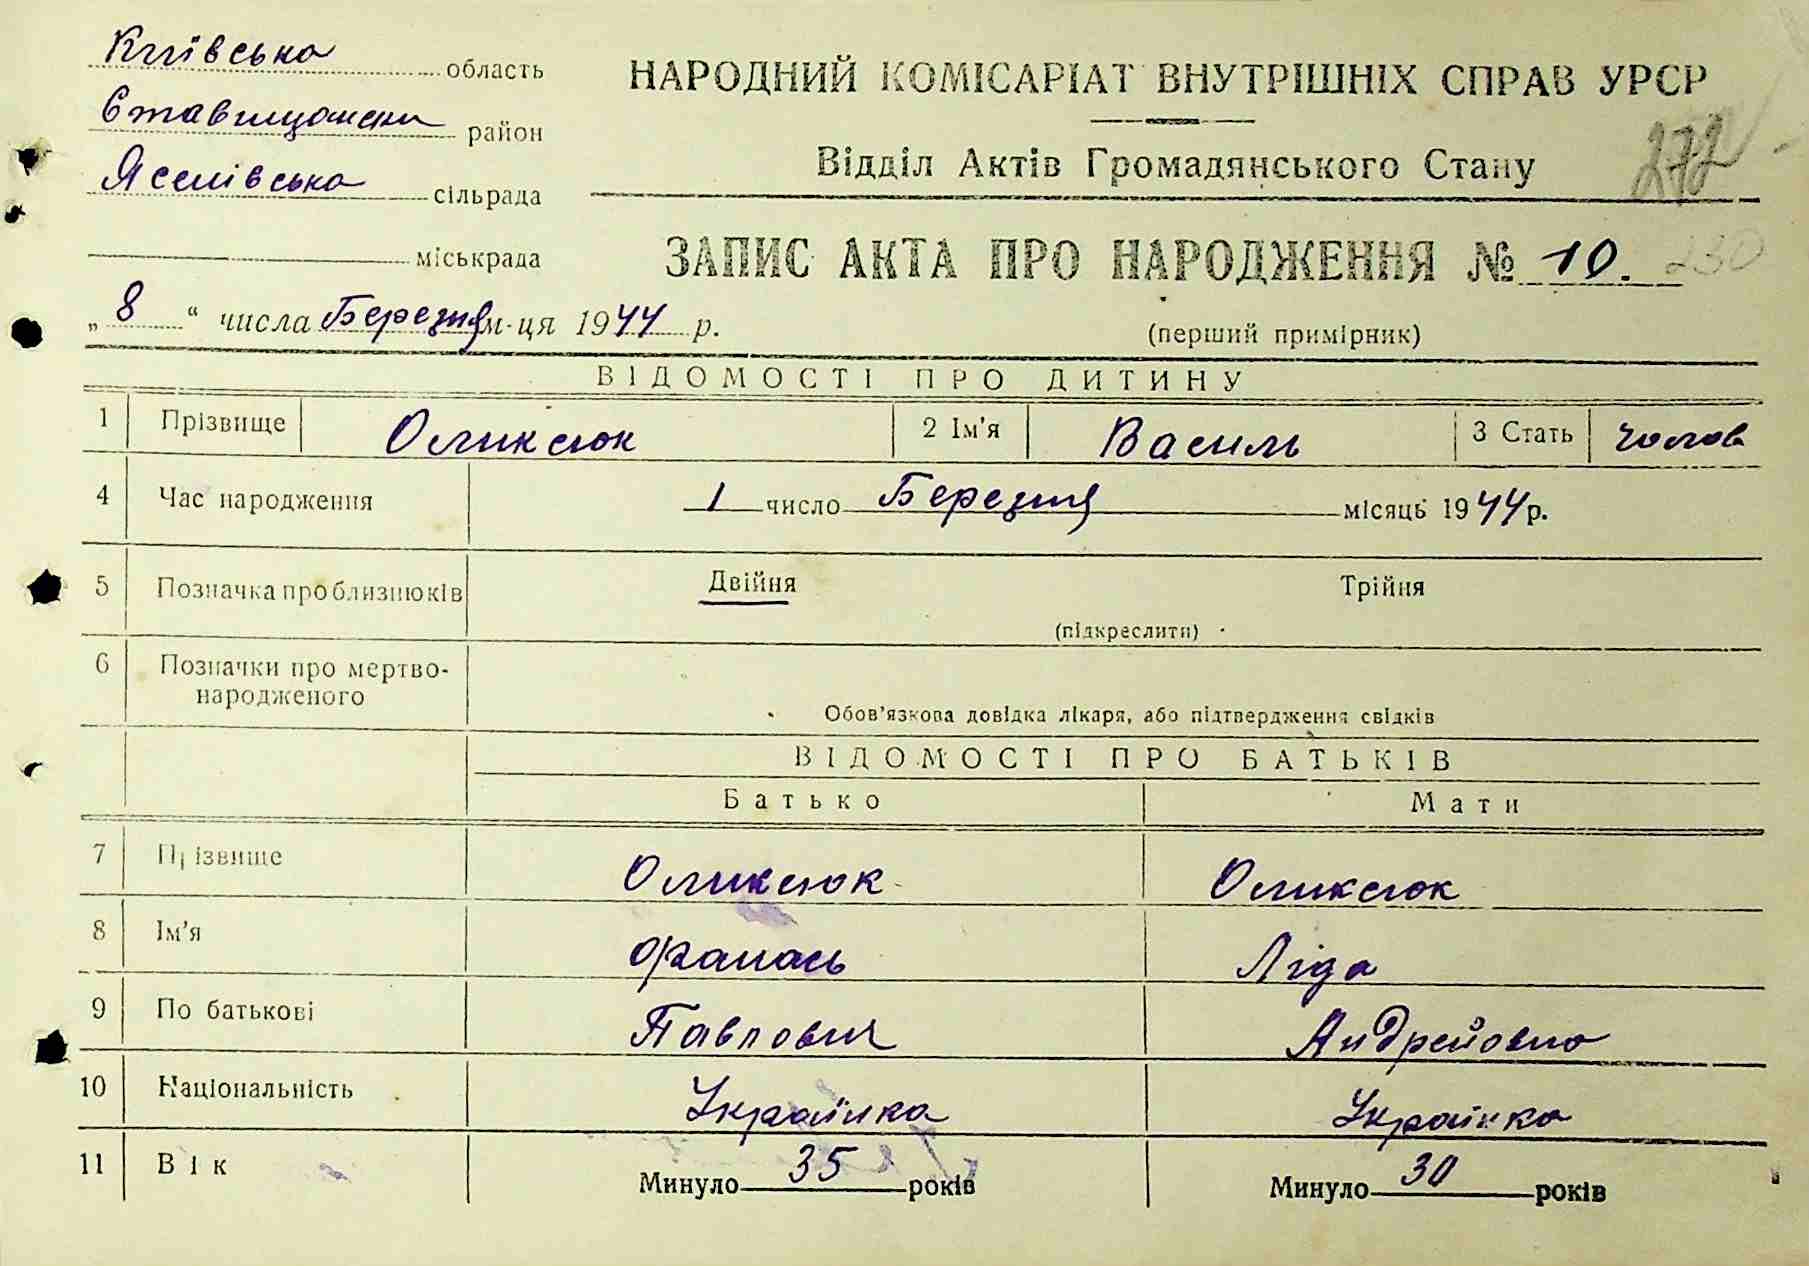 Київська область
НАРОДНИЙ КОМІСАРІАТ ВНУТРІШНІХ СПРАВ УРСР
район
Відділ Актів Громадянського Стану
272
сільрада
міськрада
ЗАПИС АКТА ПРО НАРОДЖЕННЯ № 10. 230
„8“ числа Березня м-ця 1944 р.
(перший примірник)
ВІДОМОСТІ ПРО ДИТИНУ
1 Прізвище Оликсюк 2 Ім'я Василь 3 Стать чолов
4 Час народження 1 число Березня місяць 1944 р.
5 Позначка про близнюків Двійня Трійня
(підкреслити)
6 Позначки про мертво-
народженого
Обов'язкова довідка лікаря, або підтвердження свідків
ВІДОМОСТІ ПРО БАТЬКІВ
Батько Мати
7 Прізвище Оликсюк Оликсюк
8 Ім'я Фанась Ліда
9 По батькові Павлович Андрейовна
10 Національність Українка Українка
11 Вік Минуло 35 років Минуло 30 років